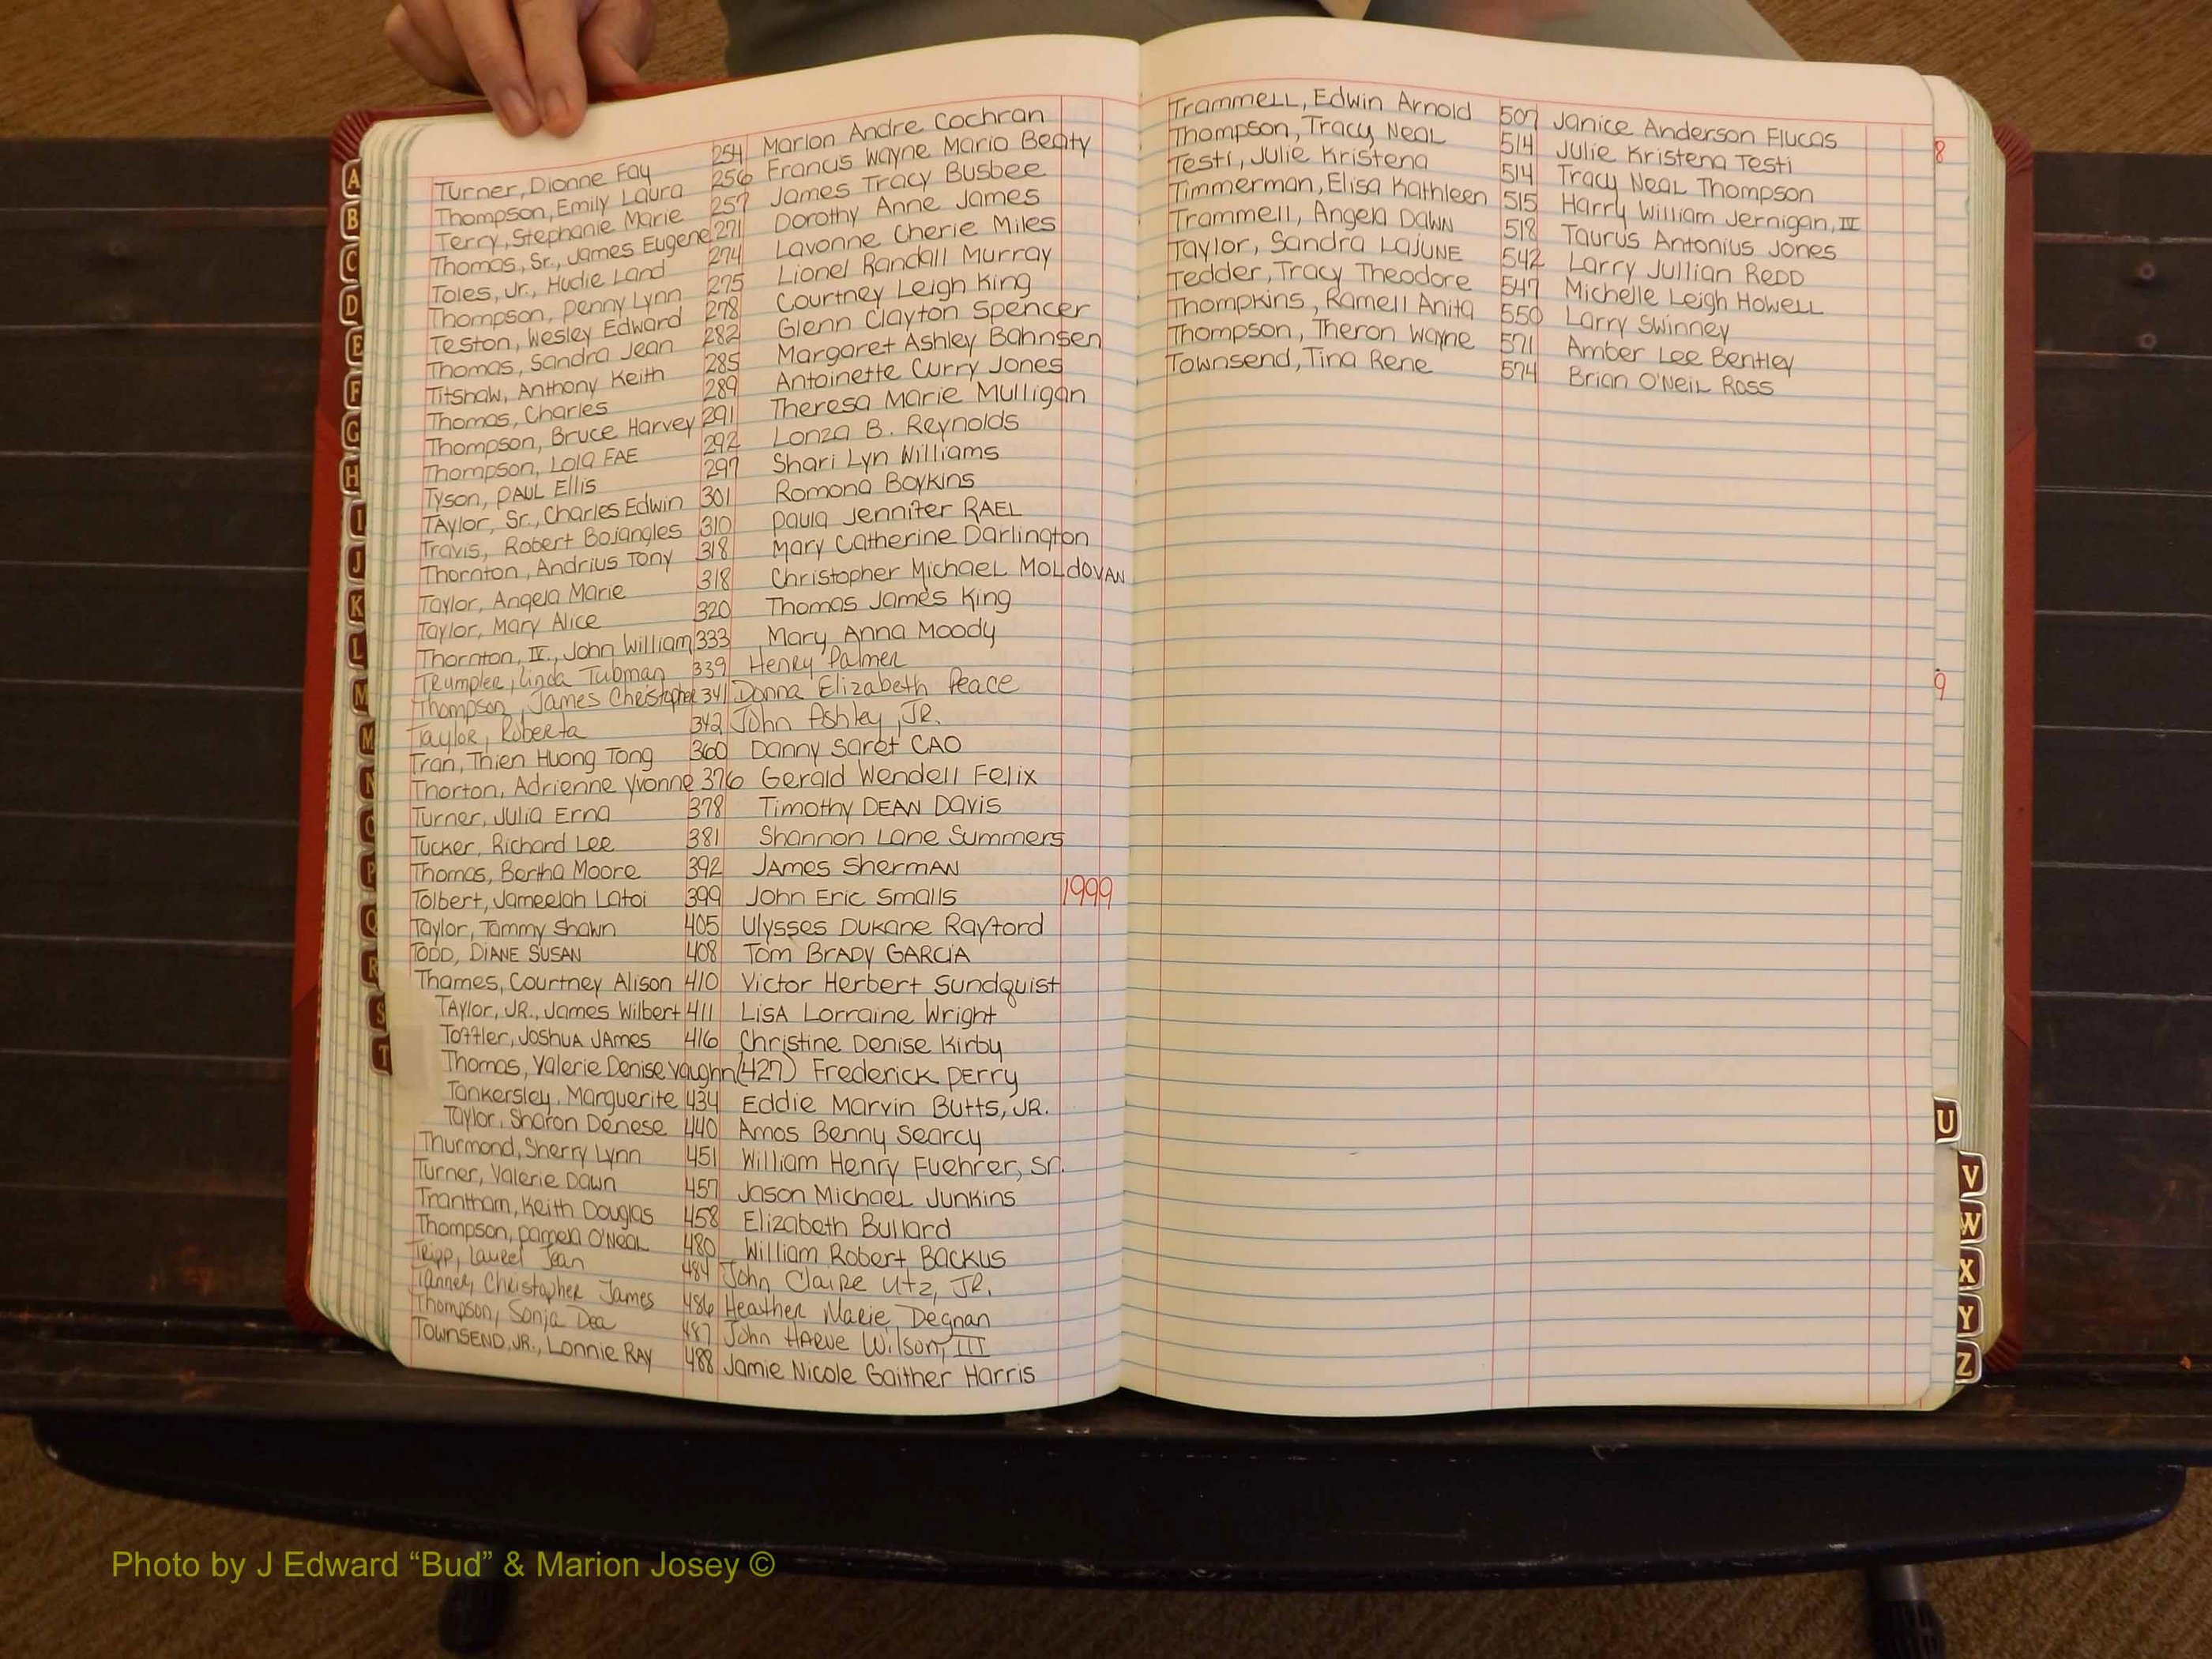 Turner, Dionne Fay 254 Marlon Andre Cochran
Thompson, Emily Laura 256 Francis Wayne Mario Beaty
Terry, Stephanie Marie 257 James Tracy Busbee
Thomas, Sr., James Eugene 271 Dorothy Anne James
Toles, Jr., Hudie Land 274 Lavonne Cherie Miles
Thompson, Penny Lynn 275 Lionel Randall Murray
Teston, Wesley Edward 278 Courtney Leigh King
Thomas, Sandra Jean 282 Glenn Clayton Spencer
Titshaw, Anthony Keith 285 Margaret Ashley Bahnsen
Thomas, Charles 289 Antoinette Curry Jones
Thompson, Bruce Harvey 291 Theresa Marie Mulligan
Thompson, Lola FAE 292 Lonza B. Reynolds
Tyson, PAUL Ellis 297 Shari Lyn Williams
TAylor, Sr., Charles Edwin 301 Romona Boykins
Travis, Robert Bojangles 310 Paula Jennifer RAEL
Thornton, Andrius Tony 318 Mary Catherine Darlington
Taylor, Angela Marie 318 Christopher Michael MOLdOVAN
Taylor, Mary Alice 320 Thomas James King
Thornton, IV., John William 333 Mary Anna Moody
Trumpler, Linda Tubman 339 Henry Palmer
Thompson, James Christopher 341 Donna Elizabeth Peace
Taylor, Roberta 342 John Ashley, JR.
Tran, Thien Huong Tong 360 Danny Saret CAO
Thorton, Adrienne Yvonne 376 Gerald Wendell Felix
Turner, Julia Erna 378 Timothy DEAN Davis
Tucker, Richard Lee 381 Shannon Lane Summers
Thomas, Bertha Moore 392 JAmes ShermAN
Tolbert, Jameelah Latoi 399 John Eric Smalls 1999
Taylor, Tammy Shawn 405 Ulysses Dukane Rayford
TODD, DIANE SUSAN 408 Tom BRADY GARCIA
Thames, Courtney Alison 410 Victor Herbert Sundquist
TAylor, JR., James Wilbert 411 LISA Lorraine Wright
Toffler, JOSHUA JAmes 416 Christine Denise Kirby
Thomas, Valerie Denise Vaughn (427) Frederick PERRY
Tankersley, Marguerite 434 Eddie Marvin Butts, JR.
Taylor, Sharon Denese 440 Amos Benny Searcy
Thurmond, Sherry Lynn 451 William Henry Fuehrer, Sr.
Turner, Valerie Dawn 457 Jason Michael Junkins
Trantham, Keith Douglas 458 Elizabeth Bullard
Thompson, Pamela O'Neal 480 William Robert Backus
Tripp, Laurel Jean 484 John Claire Utz, JR.
Tanner, Christopher James 486 Heather Marie Degnan
Thompson, Sonja Dea 487 John HARVE Wilson, III
TOWNSEND, JR., LONNIE RAY 488 Jamie Nicole Gaither Harris
Trammell, Edwin Arnold 507 Janice Anderson Flucas
Thompson, Tracy Neal 514 Julie Kristena Testi
Testi, Julie Kristena 514 Tracy Neal Thompson
Timmerman, Elisa Kathleen 515 Harry William Jernigan, III
Trammell, Angela Dawn 518 Taurus Antonius Jones
Taylor, Sandra LaJUNE 542 Larry Jullian REDD
Tedder, Tracy Theodore 547 Michelle Leigh Howell
Thompkins, Ramell Anita 550 Larry Swinney
Thompson, Theron Wayne 571 Amber Lee Bentley
Townsend, Tina Rene 574 Brian O'Neil Ross
8
9
A
B
C
D
E
F
G
H
I
J
K
L
M
M
N
O
P
Q
R
S
T
U
V
W
X
Y
Z
Photo by J Edward “Bud” & Marion Josey ©